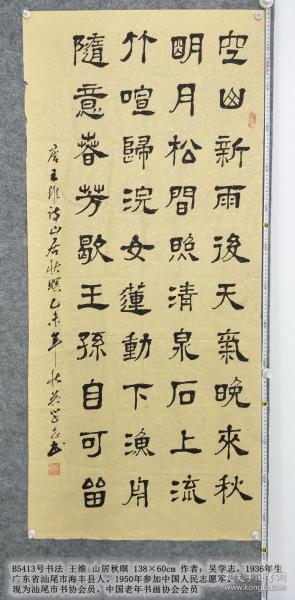 空山新雨後天氣晚來秋
明月松間照清泉石上流
竹喧歸浣女蓮動下漁舟
隨意春芳歇王孫自可留
唐王維诗山居秋暝乙未年秋吴学志书
B5413号书法 王维 山居秋暝 138×60cm 作者：吴学志，1936年生
广东省汕尾市海丰县人，1950年参加中国人民志愿军，
现为汕尾市书协会员，中国老年书画协会会员